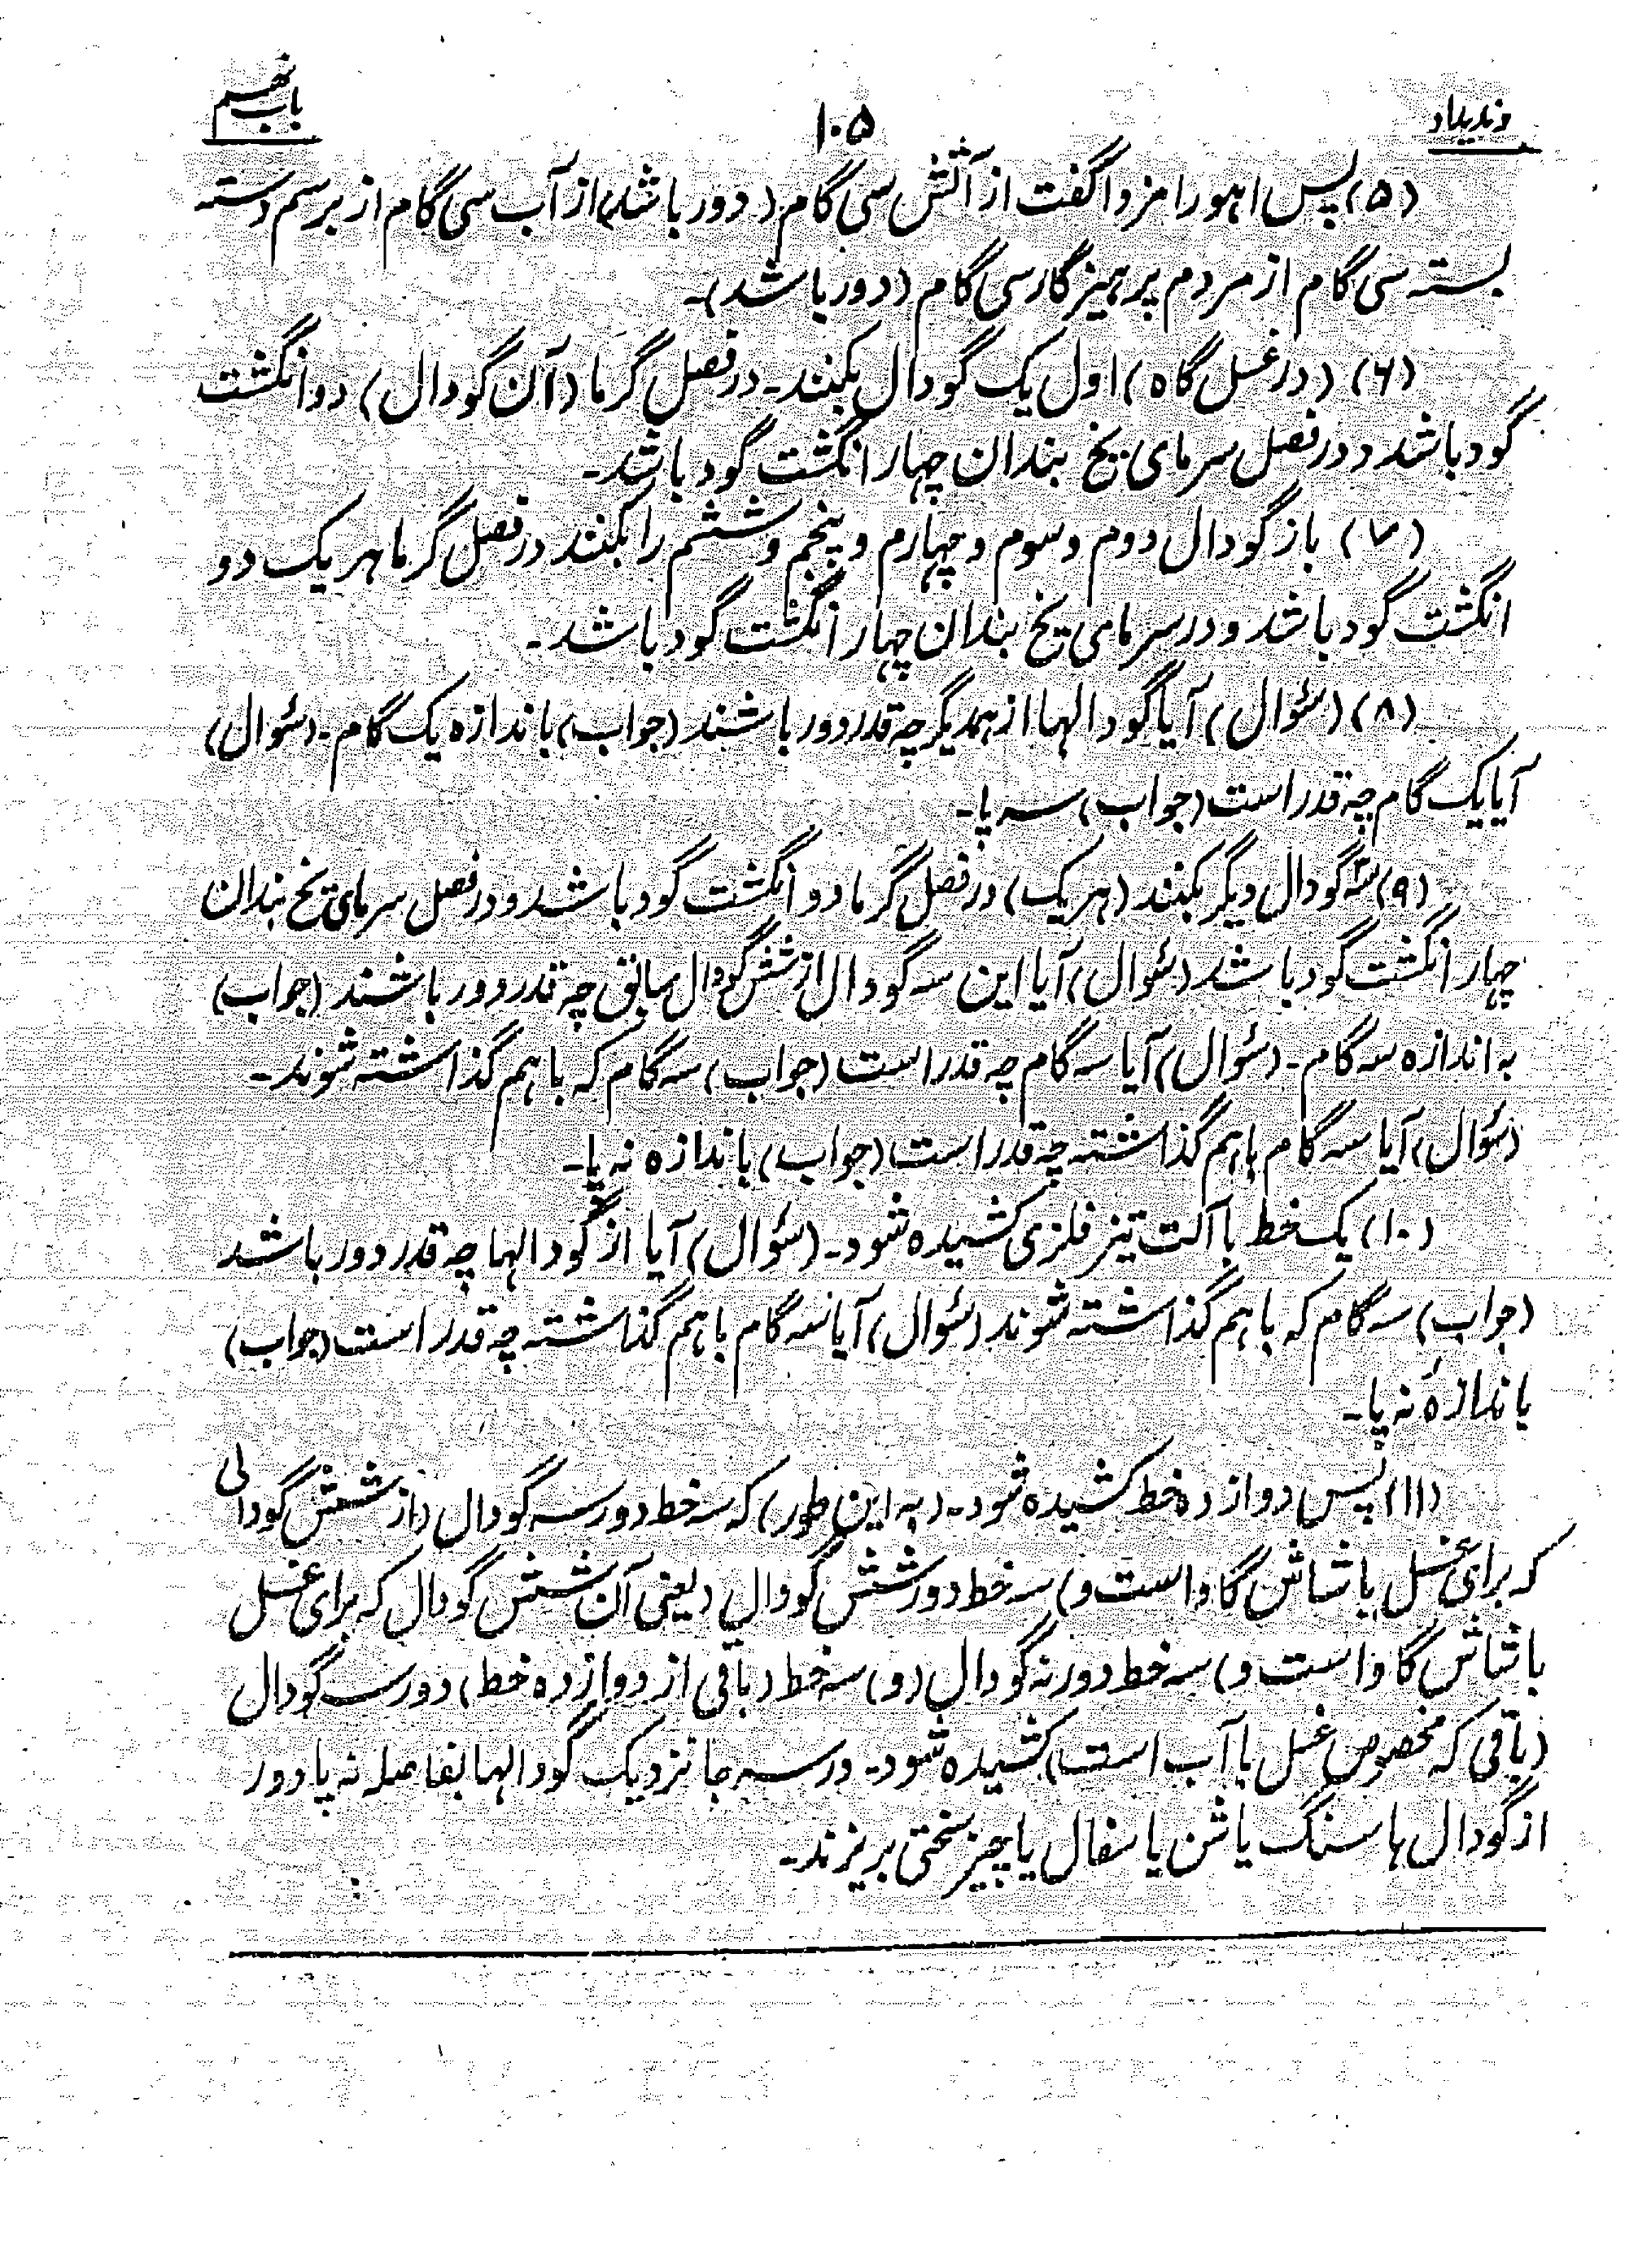 وندیداد
۱۰۵
باب نهم
(۵) پس اهورا مزدا گفت از آتش سی گام (دور باشد) از آب سی گام از برسم دسته
بسته سی گام از مردم پرهیزگار سی گام (دور باشد)-
(۶) (در غسل گاه) اول یک گودال بکنند- در فصل گرما (آن گودال) دو انگشت
گود باشد و در فصل سرمای یخ بندان چهار انگشت گود باشد-
(۷) باز گودال دوم و سوم و چهارم و پنجم و ششم را بکنند در فصل گرما هر یک دو
انگشت گود باشد و در سرمای یخ بندان چهار انگشت گود باشد-
(۸) (سئوال) آیا گودالها از همدیگر چه قدر دور باشند (جواب) باندازه یک گام- (سئوال)
آیا یک گام چه قدر است (جواب) سه پا-
(۹) سه گودال دیگر بکنند (هر یک) در فصل گرما دو انگشت گود باشد و در فصل سرمای یخ بندان
چهار انگشت گود باشد (سئوال) آیا این سه گودال از شش گودال سابق چه قدر دور باشند (جواب)
به اندازه سه گام- (سئوال) آیا سه گام چه قدر است (جواب) سه گام که با هم گذاشته شوند-
(سئوال) آیا سه گام باهم گذاشته چه قدر است (جواب) باندازه نه پا-
(۱۰) یک خط با آلت تیز فلزی کشیده شود- (سئوال) آیا از گودالها چه قدر دور باشد
(جواب) سه گام که با هم گذاشته شوند (سئوال) آیا سه گام با هم گذاشته چه قدر است (جواب)
باندازهٔ نه پا-
(۱۱) پس دوازده خط کشیده شود- (به این طور) که سه خط دور سه گودال (از شش گودالی
که برای غسل با شاش گاو است و) سه خط دور شش گودال (یعنی آن شش گودال که برای غسل
با شاش گاو است و) سه خط دور نه گودال (و) سه خط (باقی از دوازده خط) دور سه گودال
(باقی که مخصوص غسل با آب است) کشیده شود- در سه جا نزدیک گودالها بفاصله نه پا دور
از گودال ها سنگ یا شن یا سفال یا چیز سختی بریزند-